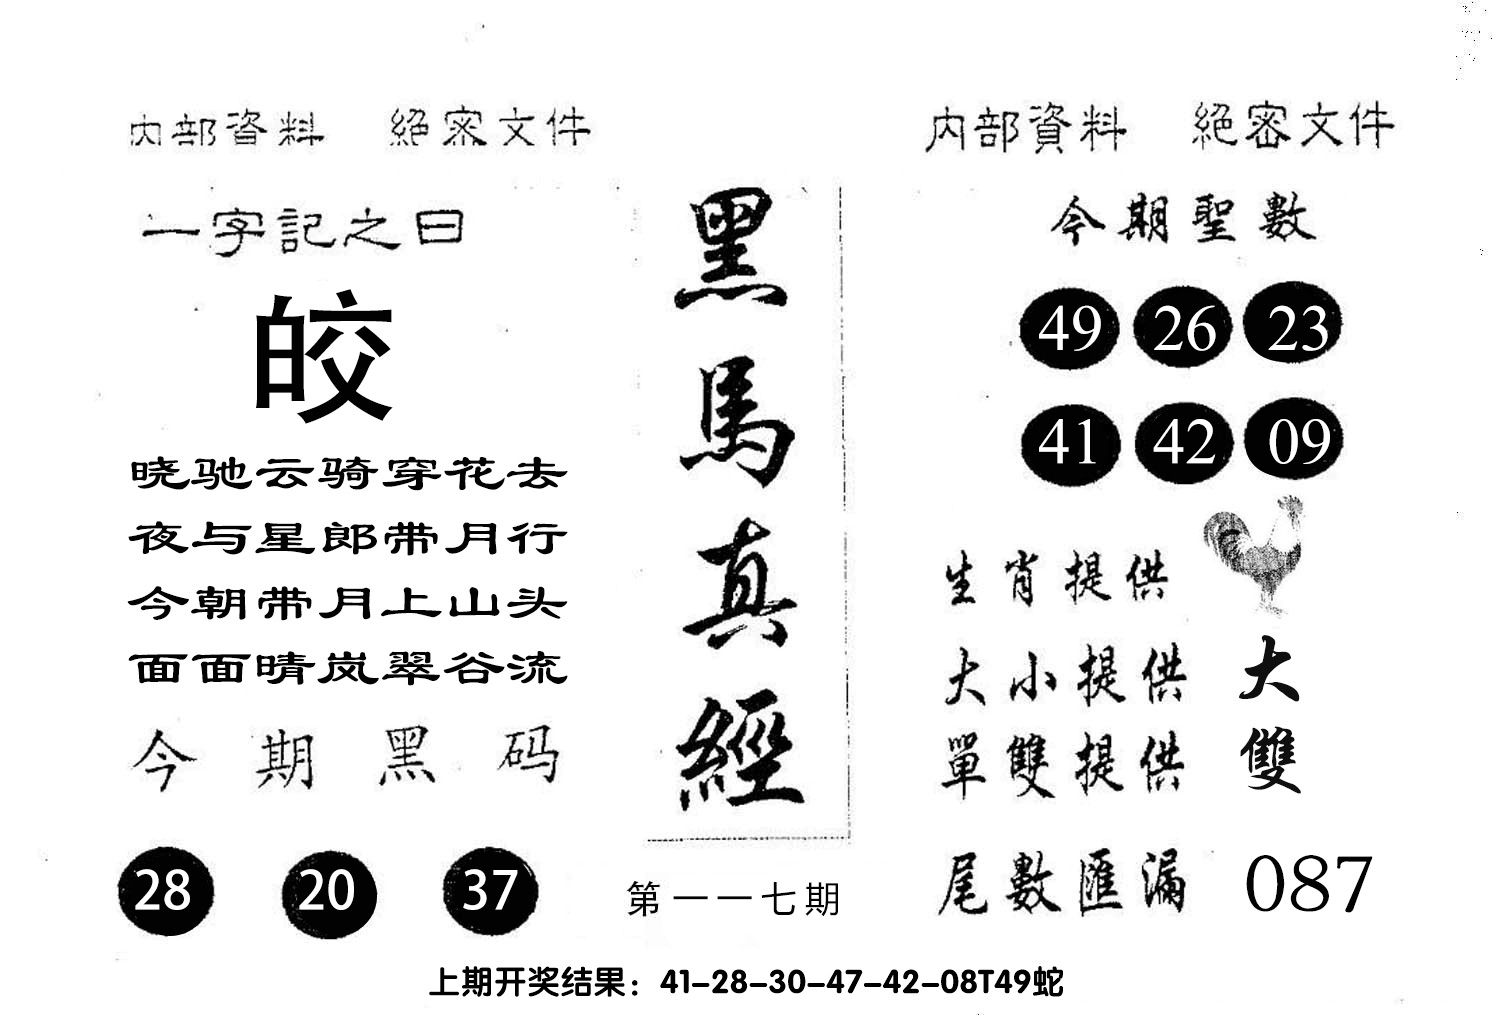 内部資料 絕密文件
一字記之曰
皎
晓驰云骑穿花去
夜与星郎带月行
今朝带月上山头
面面晴岚翠谷流
今期黑码
28 20 37
黑馬真經
第一一七期
内部資料 絕密文件
今期聖數
49 26 23
41 42 09
生肖提供
大小提供 大
單雙提供 雙
尾數匯漏 087
上期开奖结果：41-28-30-47-42-08T49蛇